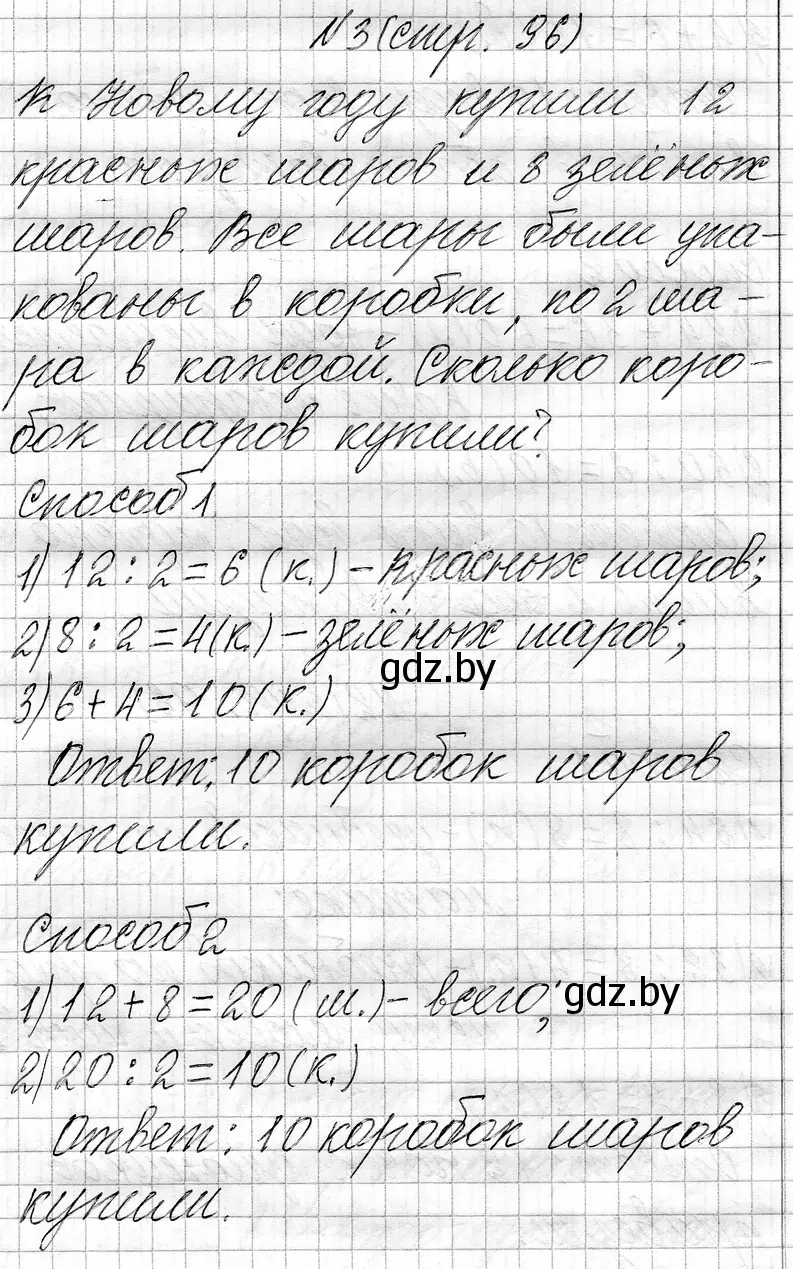 №3 (стр. 96)
К Новому году купили 12
красных шаров и 8 зелёных
шаров. Все шары были упа-
кованы в коробки, по 2 ша-
ра в каждой. Сколько коро-
бок шаров купили?
Способ 1
1) 12 : 2 = 6 (к.) – красных шаров;
2) 8 : 2 = 4 (к.) – зелёных шаров;
gdz.by
3) 6 + 4 = 10 (к.)
Ответ: 10 коробок шаров
купили.
Способ 2
1) 12 + 8 = 20 (ш.) – всего;
gdz.by
2) 20 : 2 = 10 (к.)
Ответ: 10 коробок шаров
купили.